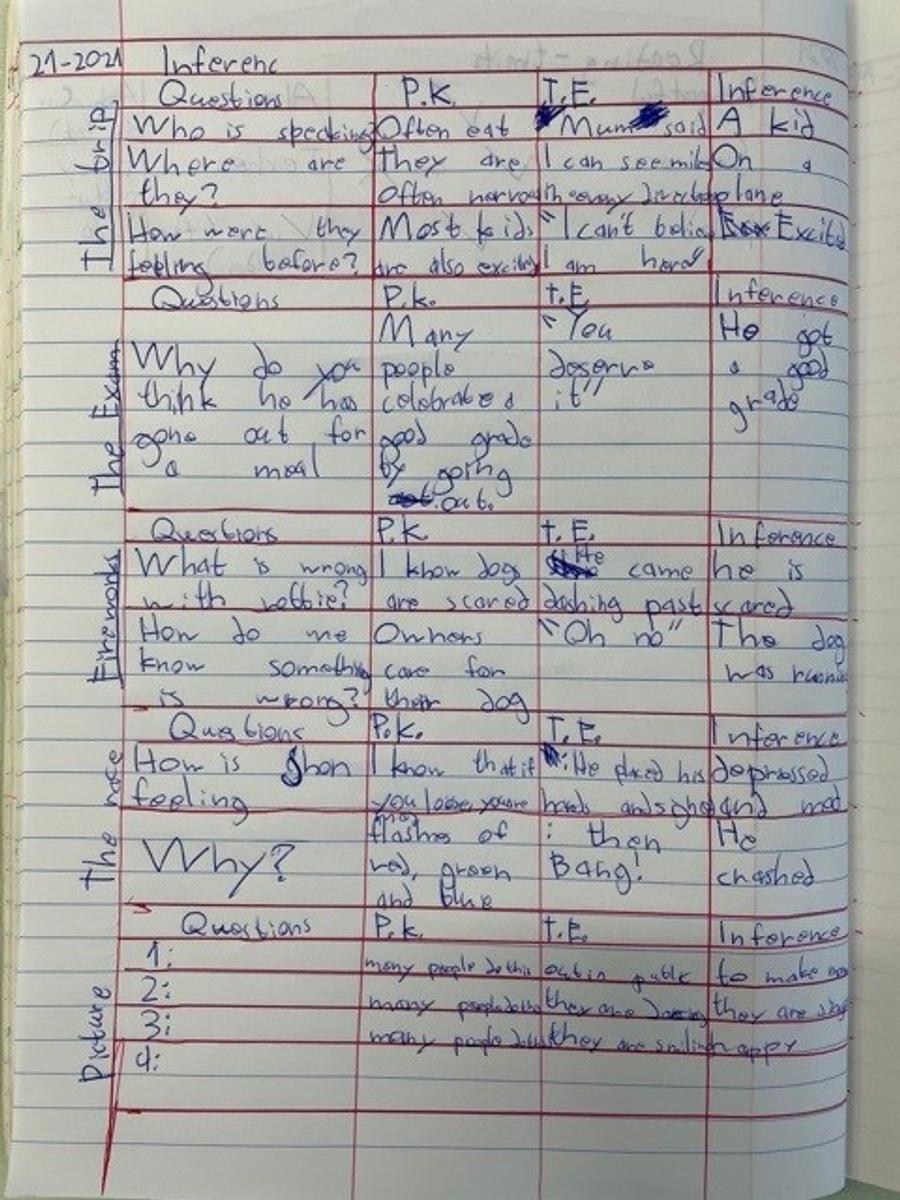 21-2021 Inferenc
Questions P.K. T.E. Inference
The trip
Who is specking Often eat "Mum said A kid
Where are they are I can see mile On a
they? often nervos in every direction plane
How were they Most kids "I can't belie Excited
feeling before? are also excited I am here"
Questions P.k. t.E Inference
The Exam
Many "You He got
Why do you people deserve a good
think he has celebrated it" grade
gone out for good grade
a meal by going
out.
Questions P.K. t.E. Inference
Fireworks
What is wrong I know dog He came he is
with lottie? are scared dashing past scared
How do we Owners "Oh no" The dog
know something care for was runnin
is wrong? their dog
Questions P.K. T.E. Inference
The race
How is Shon I know that if : He placed his depressed
feeling you loose, you are hands and sighed and mad
mad
flashes of : then He
Why? red, green Bang! crashed
and blue
Questions P.k. t.E. Inference
Picture
1: many people do this out in public to make
2: many people do this they are dancing they are
3: many people do this they are smiling happy
4: